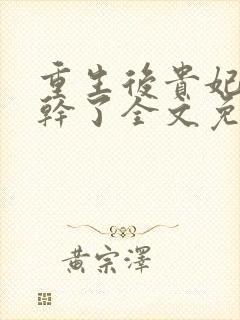 重生後貴妃
幹了全文免
黃宗澤